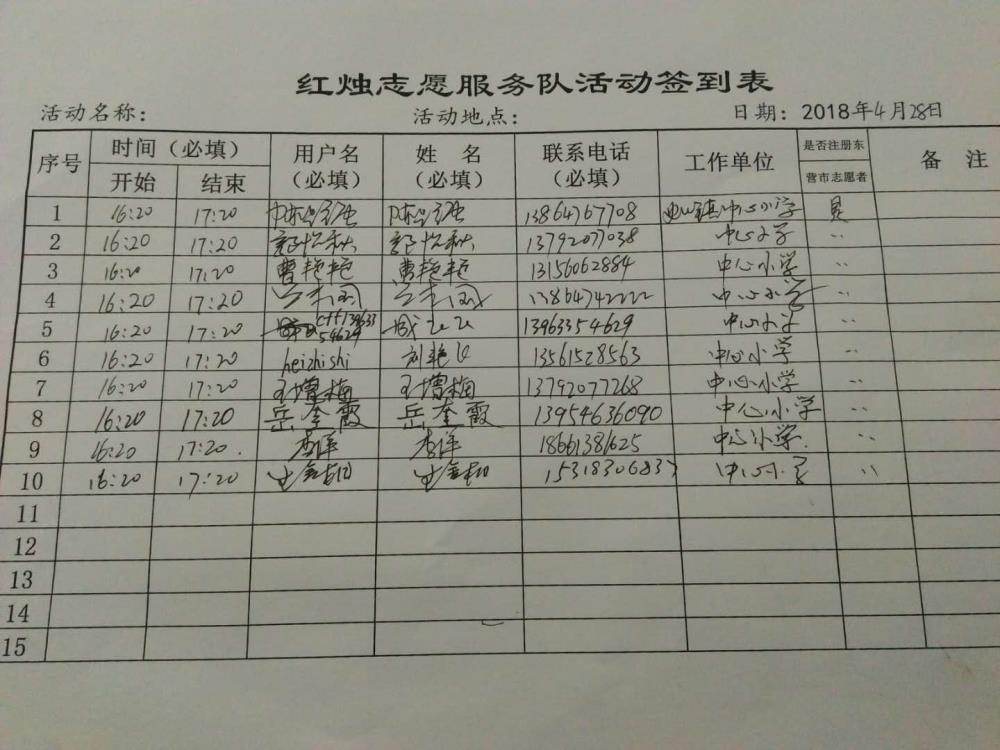 红烛志愿服务队活动签到表
活动名称： 活动地点： 日期：2018年4月28日
序号 时间（必填） 用户名（必填） 姓名（必填） 联系电话（必填） 工作单位 是否注册东营市志愿者 备注
开始 结束
1 16:20 17:20 13864767708 中心小学 是
2 16:20 17:20 13792077038 中心小学 〃
3 16:20 17:20 曹艳艳 曹艳艳 13156062884 中心小学 〃
4 16:20 17:20 13864742222 中心小学 〃
5 16:20 17:20 13963354629 中心小学 〃
6 16:20 17:20 heizhishi 13561528563 中心小学 〃
7 16:20 17:20 王增梅 王增梅 13792077268 中心小学 〃
8 16:20 17:20 岳奎霞 岳奎霞 13954636090 中心小学 〃
9 16:20 17:20. 李洋 李洋 18661381625 中心小学. 〃
10 16:20 17:20 15318306837 中心小学 〃
11
12
13
14
15